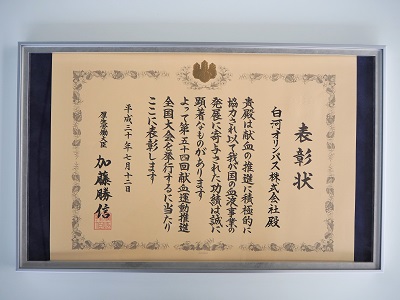 表彰状
白河オリンパス株式会社殿
貴殿は献血の推進に積極的に
協力され以て我が国の血液事業の
発展に寄与された功績は誠に
顕著なものがあります
よって第五十四回献血運動推進
全国大会を挙行するに当たり
ここに表彰します
平成三十年七月十二日
厚生労働大臣
加藤勝信